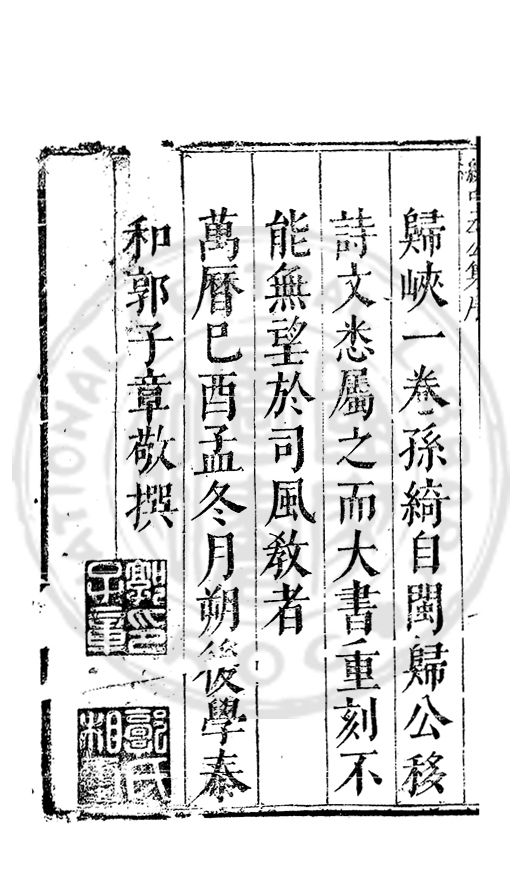 歸峽一卷孫綺自閩歸公移
詩文悉屬之而大書重刻不
能無望於司風教者
萬曆己酉孟冬月朔後學泰
和郭子章敬撰